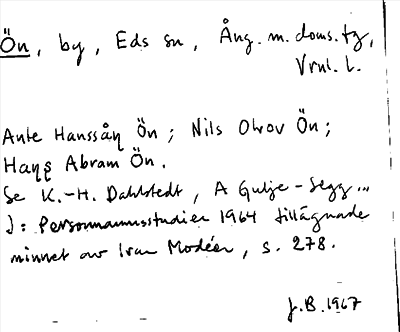 Ön, by, Eds sn, Ång. m. doms. tg,
Vrnl. l.
Ante Hanssån Ön; Nils Olrov Ön;
Hans Abram Ön.
Se K.-H. Dahlstedt, A Gulje-Segg...
I: Personnamnsstudier 1964 tillägnade
minnet av Ivar Modéer, s. 278.
J.B. 1967